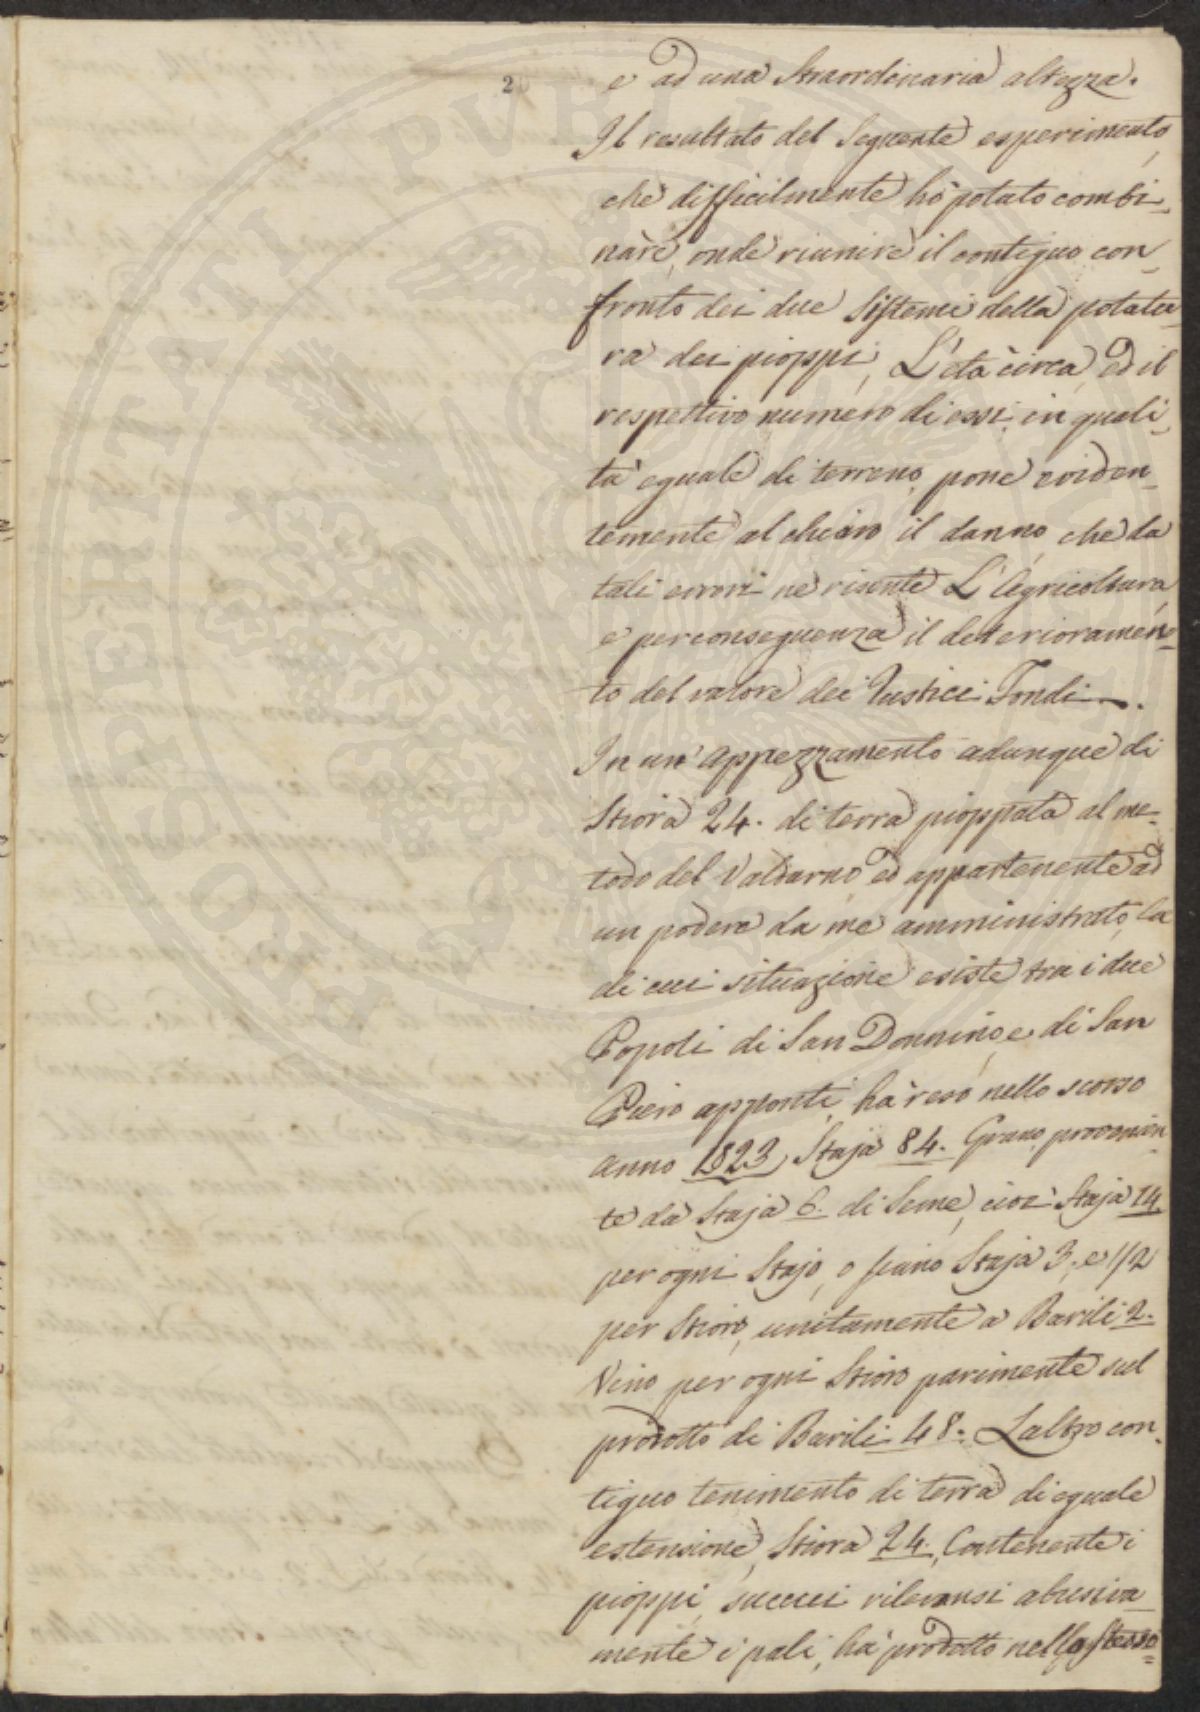 2
e ad una Straordinaria altezza.
Il resultato del Seguente esperimento,
che difficilmente hò potuto combi-
nare, onde riunire il contiguo con-
fronto dei due Sistemi della potatu-
ra dei pioppi, L'età circa, ed il
respettivo numero di essi, in quali-
tà eguale di terreno, pone eviden-
temente al chiaro il danno, che da
tali errori ne risente L'Agricoltura,
e perconseguenza il deterioramen-
to del valore dei Rustici Fondi.
In un' appezzamento adunque di
Stiora 24. di terra pioppata al me-
todo del Valdarno, ed appartenente ad
un podere da me amministrato, la
di cui situazione esiste tra i due
Popoli di San Donnino, e di San
Piero apponti, ha reso nello scorso
anno 1823, Staja 84. Grano, provenien-
te da Staja 6. di Seme, cioè Staja 14
per ogni Stajo, o siano Staja 3, e 1/2
per Stioro, unitamente a Barili 2.
Vino per ogni Stioro parimente sul
prodotto di Barili 48. Laltro con-
tiguo tenimento di terra di eguale
estensione, Stiora 24, Contenente i
pioppi, sucui rilevansi abusiva-
mente i pali, hà prodotto nello stesso
PROSPERITATI PVBLICAE